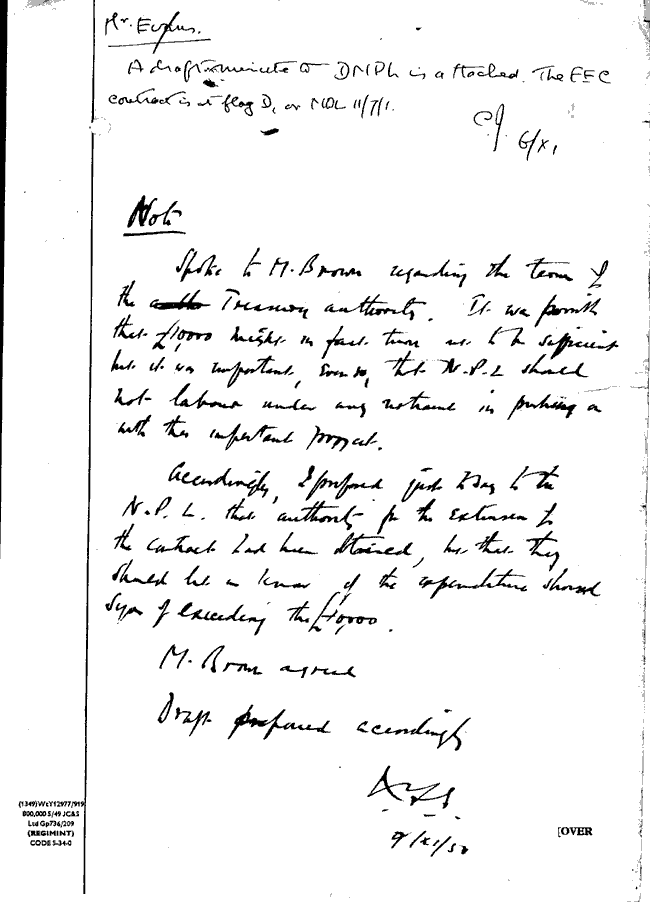 Mr. Evans.
A draft minute to DNPL is attached. The EEC
contract is at flag D, on NDL 11/7/1.
C.J. 6/XI
Note
Spoke to Mr. Brown regarding the terms of
the Treasury authority. It was
that £10,000 might in fact turn out to be sufficient
but it was important, even so, that N.P.L should
not labour under any restraint in pushing on
with this important project.
Accordingly, I proposed just to say to the
N.P.L. that authority for the extension to
the contract had been obtained, but that they
should let us know if the expenditure showed
signs of exceeding the £10,000.
Mr. Brown agreed
Draft prepared accordingly
9/XI/50
(1349)Wt.Y12977/919
800,000 5/49 JC&S
Ltd Gp736/209
(REGIMINT)
CODE 5-34-0
[OVER